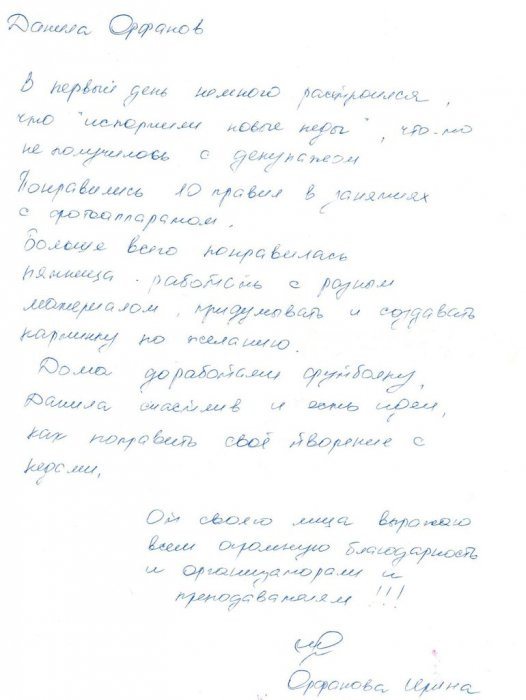 Данила Орфанов
В первый день немного расстроился,
что "испортили новые кеды", что-то
не получилось с декупажем
Понравились 10 правил в занятиях
с фотоаппаратом.
Больше всего понравилась
пятница - работать с разным
материалом, придумывать и создавать
картинку по желанию.
Дома доработали футболку,
Данила счастлив и есть идеи,
как поправить своё творение с
кедами.
От своего лица выражаю
всем огромную благодарность
и организаторам и
преподавателям !!!
Орфанова Ирина